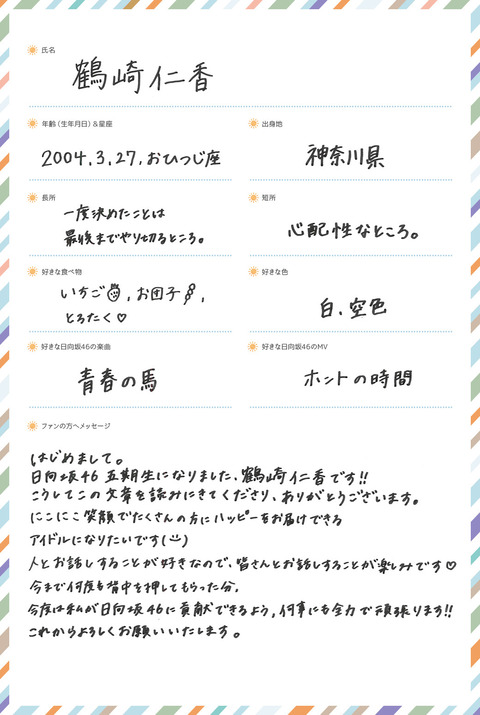 氏名
鶴崎仁香
年齢(生年月日)&星座
2004.3.27.おひつじ座
出身地
神奈川県
長所
一度決めたことは
最後までやり切るところ。
短所
心配性なところ。
好きな食べ物
いちご,お団子,
とろたく♡
好きな色
白.空色
好きな日向坂46の楽曲
青春の馬
好きな日向坂46のMV
ホントの時間
ファンの方へメッセージ
はじめまして。
日向坂46 五期生になりました、鶴崎仁香です!!
こうしてこの文章を読みにきてくださり、ありがとうございます。
にこにこ笑顔でたくさんの方にハッピーをお届けできる
アイドルになりたいです(
人とお話しすることが好きなので、皆さんとお話しすることが楽しみです♡
今まで何度も背中を押してもらった分、
今度は私が日向坂46に貢献できるよう,何事にも全力で頑張ります!!
これからよろしくお願いいたします。